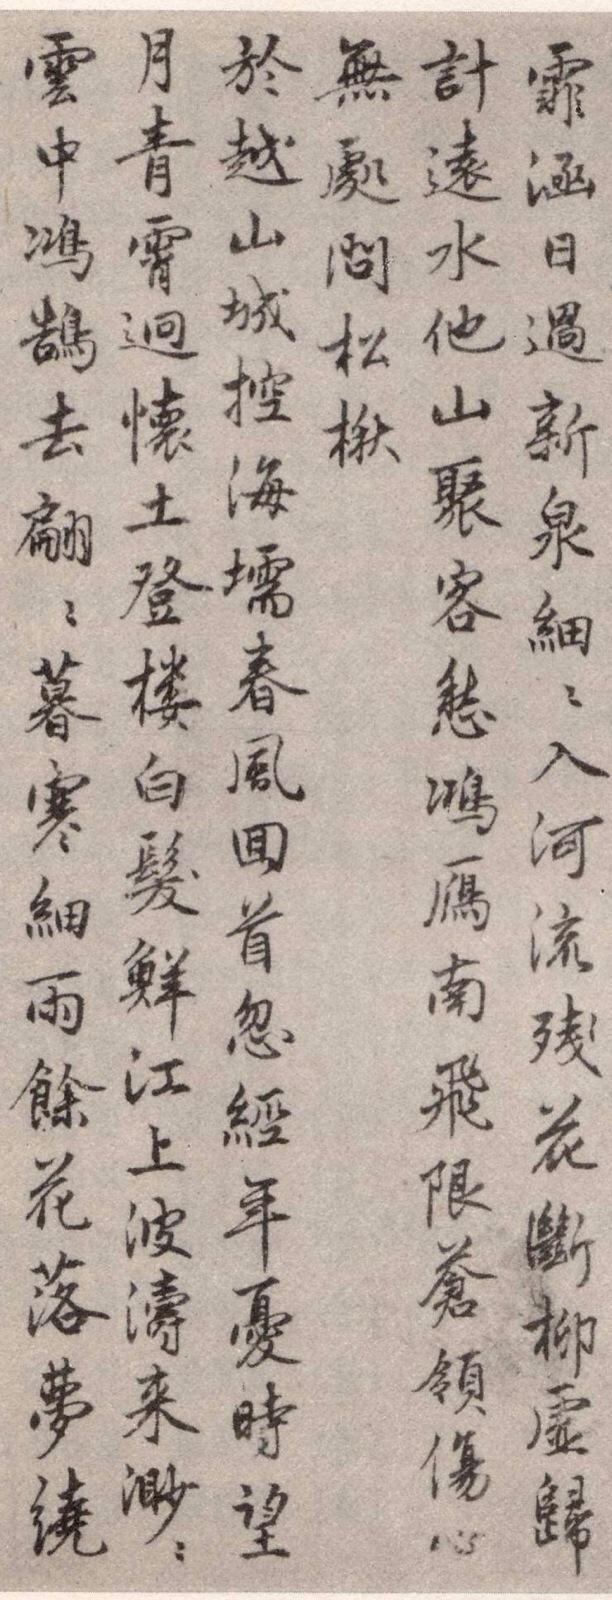 霏涵日過新泉細〻入河流残花斷柳虛歸
計遠水他山聚客愁鴻鴈南飛限蒼領傷心
無處問松楸
於越山城控海壖春風回首忽經年憂時望
月青霄迥懷土登樓白髮鮮江上波濤来渺〻
雲中鴻鵠去翩〻暮寒細雨餘花落夢繞